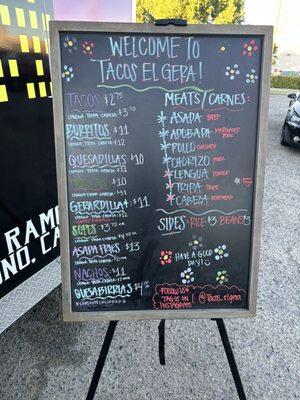 WELCOME TO
TACOS EL GERA!
TACOS $2.75
LENGUA O TRIPA $3.75
BURRITOS $11
LENGUA O TRIPA $12
QUESADILLAS $10
LENGUA O TRIPA $11
$10
LENGUA O TRIPA $11
GERARDILLA $11
LENGUA O TRIPA $12
SOPES
$3.75 EA
ASADA FRIES $13
LENGUA O TRIPA
NACHOS $11
LENGUA O TRIPA $12
QUESABIRRIAS
MEATS/CARNES:
ASADA BEEF
ADOBADA MARINATED PORK
POLLO CHICKEN
CHORIZO PORK
LENGUA TONGUE
TRIPA TRIPE
CABEZA
SIDES: RICE $3 BEANS $3
HAVE A GOOD
DAY!
FOLLOW US
TAG US ON
INSTAGRAM
RAM
NO, CA